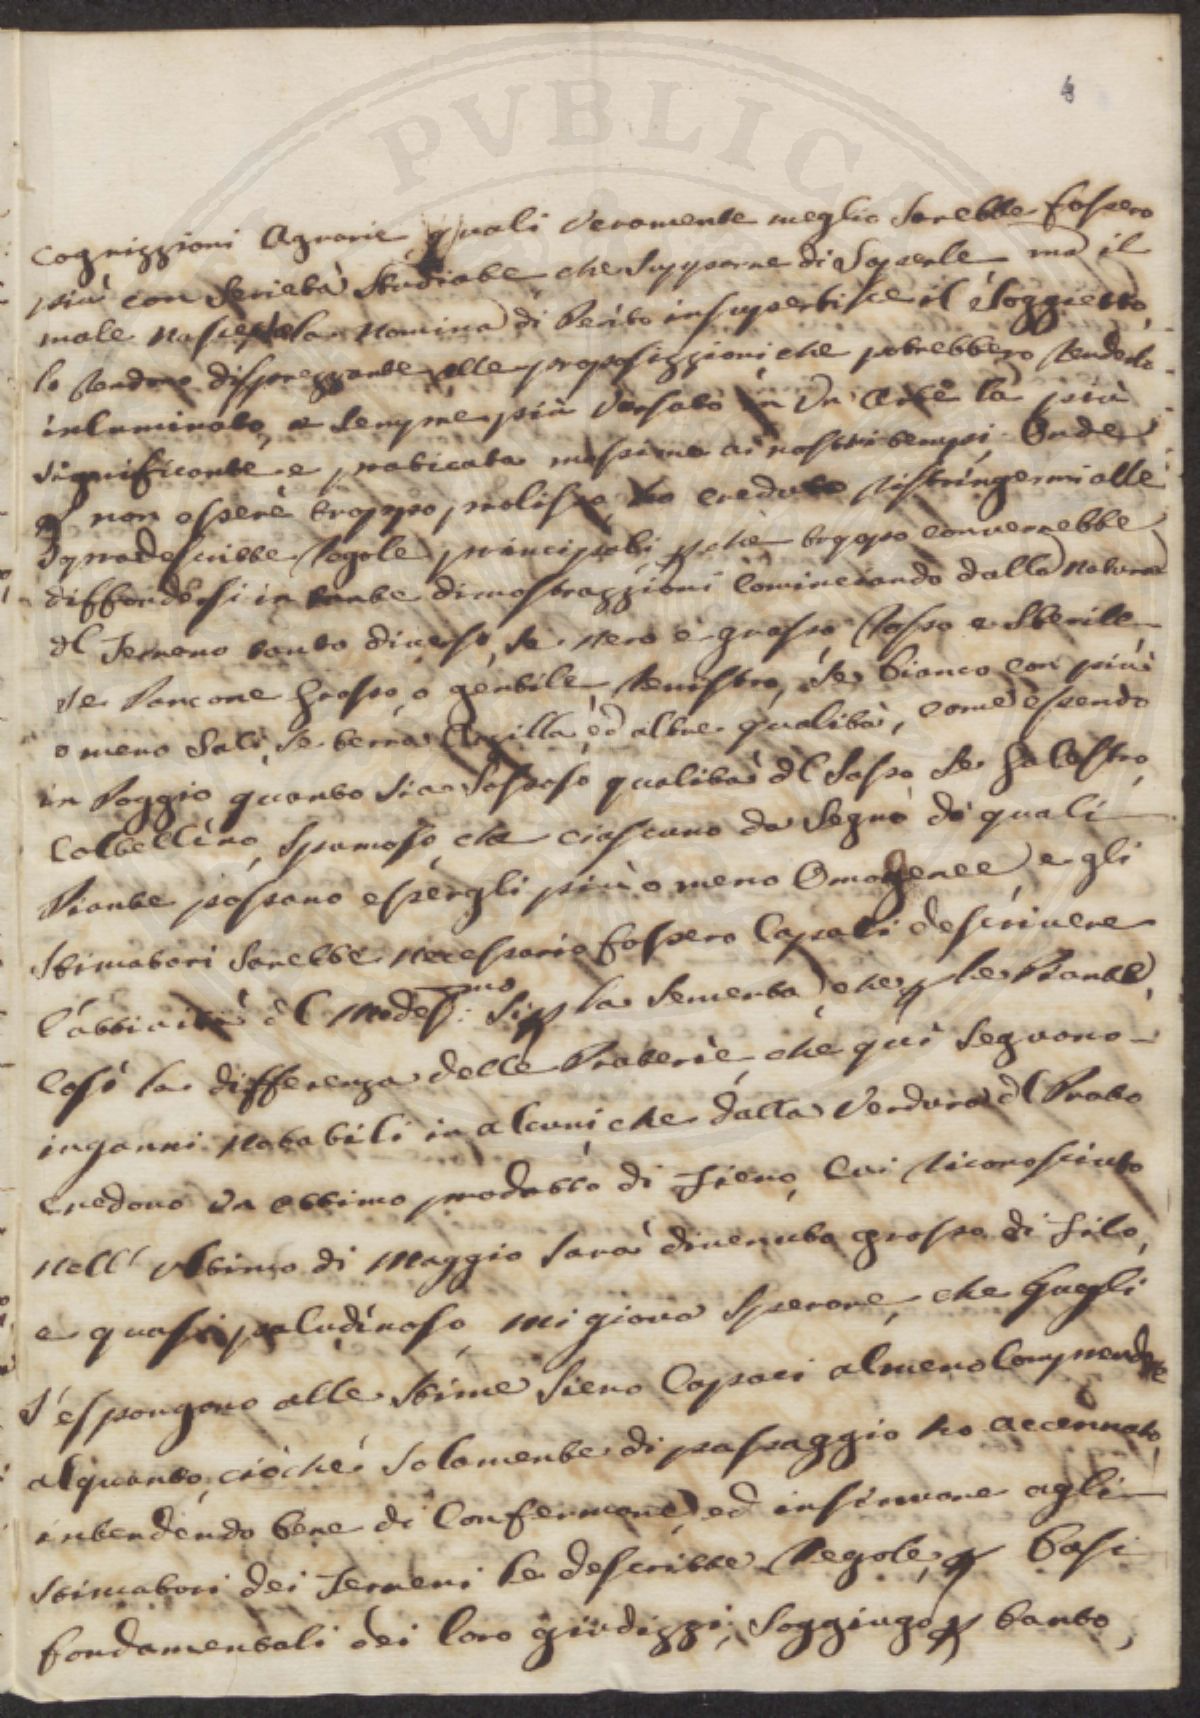 PVBLICA
Cognizzioni Agrarie quali veramente meglio sarebbe fossero
più con serietà studiate, che supporne di saperle, ma il
male nasce, la nomina di Perito insuperbisce il soggietto,
lo rendono disprezzante alle proposizzioni che potrebbero renderlo
inluminato, e sempre più versato in un Arte la più
significante e praticata massime ai nostri tempi. Onde
non essere troppo prolisso, ho creduto ristringermi alle
sopradescritte regole principali, p che troppo converrebbe
diffondersi in tante dimostrazzioni cominciando dalla natura
dl Terreno tanto diverso, se nero e grasso, rosso e sterile
se Pancone grosso, o gentile, renistro, se bianco con più
o meno sali, se terra Argilla, ed altre qualità, come essendo
in Poggio quanto sia sassoso qualità dl sasso se galestro,
Colbellino, spumoso, che ciascuno da segno di quali
Piante possano essergli più o meno Omogenee, e gli
stimatori sarebbe necessario fossero capaci descrivere
l'attività dl medes:mo si p la sementa, che p le Piante,
Così la differenza delle Praterie, che qui seguono
inganni notabili in alcuni che dalla verdura dl Prato
credono un ottimo prodotto di fieno, cui riconosciuto
nell' ultimo di Maggio sarà divenuto grosso di filo,
e quasi paludinoso, mi giova sperare, che quegli
s'espongono alle stime sieno capaci almeno comprendere
alquanto, ciòché solamente di passaggio ho accennato,
intendendo bene di confermare, ed insinuare agli
stimatori dei Terreni le descritte regole, p basi
fondamentali dei loro giudizzi; soggiungo p tanto,